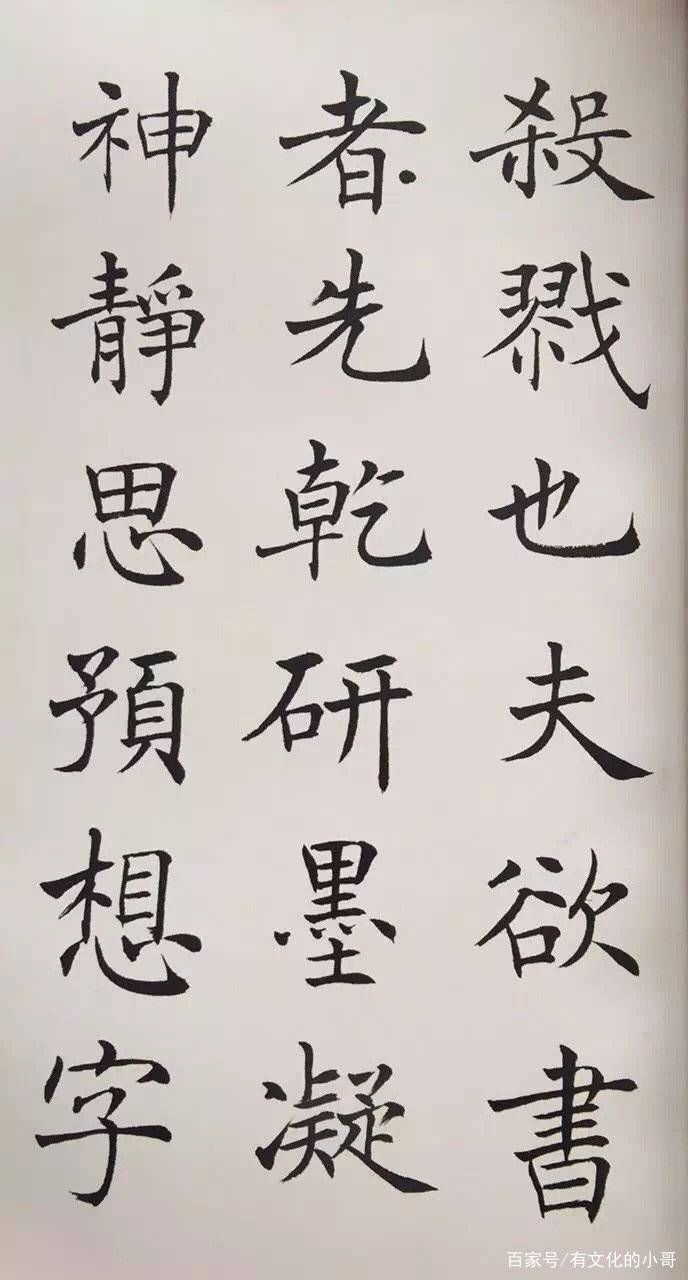 殺戮也夫欲書
者先乾研墨凝
神靜思預想字
百家号/有文化的小哥